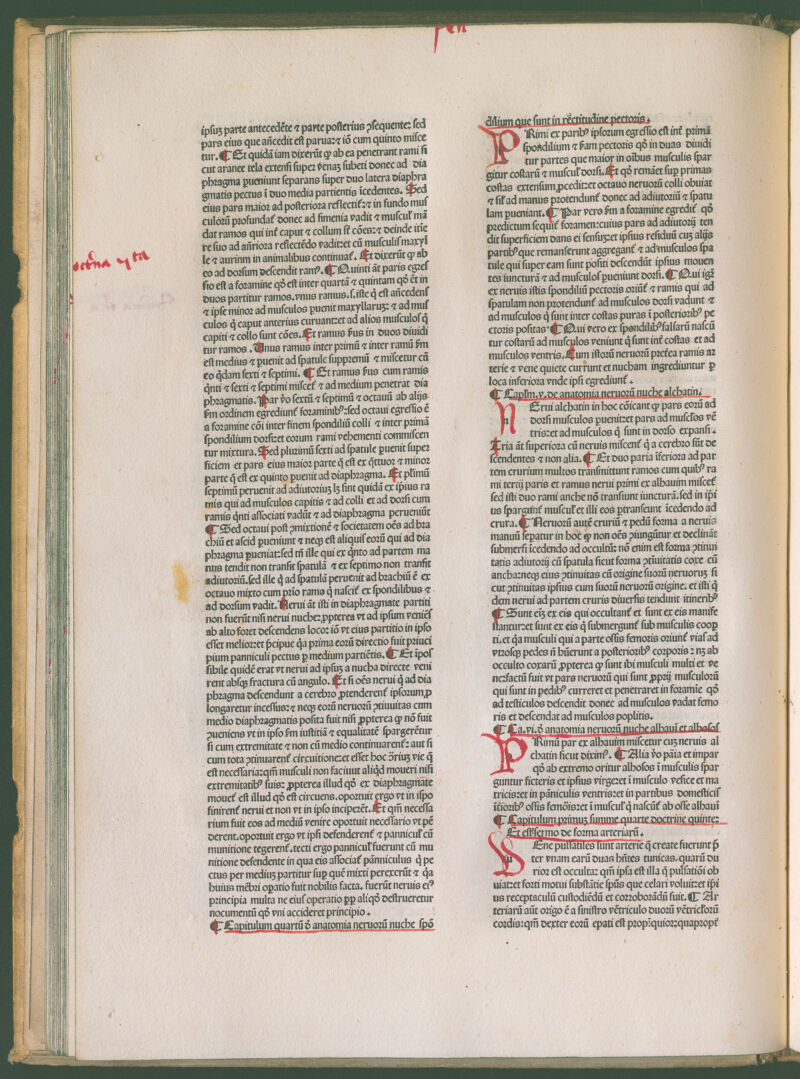 fen
ipsuꝫ parte antecedẽte ⁊ parte posterius ꝯsequente: sed
pars eius que añcedit est parua: ⁊ iõ cum quinto misce
tur. ¶ Et quidã iam dixerũt ꝙ ab ea penetrant rami si
cut aranee tela extensi super venaꝫ subeti donec ad dia
phragma pueniunt separans super duo latera diaphra
gmatis pectus ĩ duo media partientis ĩcedentes. Sed
eius pars maior ad posteriora reflectit᷑: ⁊ in fundo mus
culorũ profundat᷑ donec ad simenia vadit ⁊ muscul᷑ mã
dat ramos qui int᷑ caput ⁊ collum st̃ cões: ⁊ deinde itiẽ
re suo ad añriora reflectẽdo vadit: et cũ musculis maxyl
le ⁊ aurium in animalibus continuat᷑. Et dixerũt ꝙ ab
eo ad dorsum descendit ram⁹. ¶ Quinti añt paris egres
sio est a foramine qd̃ est inter quartã ⁊ quintam qd̃ et̃ in
duos partitur ramos. vnus ramus. s. iste q̃ est añcedens
⁊ ipse minor ad musculos puenit maxyllaruꝫ: ⁊ ad mus
culos q̃ caput anterius curuant: et ad alios musculos q̃
capiti ⁊ collo sunt cões. Et ramus s̃us in duos diuidi
tur ramos. Unus ramus inter primũ ⁊ inter ramũ s̃m
est medius ⁊ puenit ad spatule suppremũ ⁊ miscetur cũ
eo q̃dam sexti ⁊ septimi. ¶ Et ramus s̃us cum ramis
q̃nti ⁊ sexti ⁊ septimi miscet᷑ ⁊ ad medium penetrat dia
phragmatis. Par v̾o sextũ ⁊ septimũ ⁊ octauũ ab alijs
s̃m ordinem egrediunt᷑ foraminib⁹: sed octaui egressio ẽ
a foramine cõi inter finem spondiliũ colli ⁊ inter primã
spondilium dorsi: et eorum rami vehementi commiscen
tur mixtura. Sed plurimũ sexti ad spatule puenit super
ficiem et pars eius maior parte q̃ est ex q̃ttuor ⁊ minor
parte q̃ est ex quinto puenit ad diaphragma. Et plimũ
septimũ peruenit ad adiutorius lꝫ sint quidã ex ipius ra
mis qui ad musculos capitis ⁊ ad colli et ad dorsi cum
ramis q̃nti associati vadũt ⁊ ad diaphragma perueniũt
¶ Sed octaui post ꝓmixtionẽ ⁊ societatem oẽs ad bra
chiũ et ascid pueniunt ⁊ neqꝫ est aliquis eorũ qui ad dia
phragma pueniat: sed tñ ille qui ex q̃nto ad partem ma
nus tendit non transit spatulã ⁊ ex septimo non transit
adiutoriũ. sed ille q̃ ad spatulã peruenit ad brachiũ ẽ ex
octauo mixto cum prio ramo q̃ nascit᷑ ex spondilibus ⁊
ad dorsum vadit. Nerui añt isti in diaphragmate partiti
non fuerũt nisi nerui nuche: ꝓpterea vt ad ipsum veniẽs
ab alto foret descendens loco: iõ vt eius partitio in ipso
esset melior: et p̃cipue q̃a prima eorũ directio fuit priuci
pium panniculi pectus p medium partiẽtis. ¶ Et ĩpos
sibile quidẽ erat vt nerui ad ipsuꝫ a nucha directe veni
rent absqꝫ fractura cũ angulo. Et si oẽs nerui q̃ ad dia
phragma descendunt a cerebro ꝓtenderent᷑ ipsorum ꝓ
longaretur incessus: ⁊ neqꝫ eorũ neruorũ ꝯtinuitas cum
medio diaphragmatis posita fuit nisi ꝓpterea ꝙ nõ fuit
ꝯueniens vt in ipso s̃m iustitiã ⁊ equalitatẽ spargerẽtur
si cum extremitate ⁊ non cũ medio continuarent᷑: aut si
cum tota ꝯtinuarent᷑ circuitione: et esset hoc ꝯrius vie q̃
est necessaria: qm̃ musculi non faciunt aliq̃d moueri nisi
extremitatib⁹ suis: ꝓpterea illud qd̃ ex diaphragmate
mouet᷑ est illud qd̃ est circuens. oportuit ergo vt in ipso
finirent᷑ nerui et non vt in ipso inciperẽt. Et qm̃ necessa
rium fuit eos ad mediũ venire oportuit necessario vt pẽ
derent. oportuit ergo vt ipsi defenderent᷑ ⁊ pannicul᷑ cũ
munitione tegerent᷑. tecti ergo pannicul᷑ fuerunt cũ mu
nitione defendente in qua eis associat᷑ pãnniculus q̃ pe
ctus per mediuꝫ partitur sup quẽ mixti perexerũt ⁊ q̃a
huius mẽbri opatio fuit nobilis facta. fuerũt neruis ei⁹
principia multa ne eius operatio pp aliqd̃ destrueretur
nocumentũ qd̃ vni accideret principio.
¶ Capitulum quartũ d̃ anatomia neruorũ nuche spõ
dilium que sunt in rectitudine pectoris.
PRimi ex parib⁹ ipsorum egressio est int᷑ primã
spondilium ⁊ s̃am pectoris qd̃ in duas diuidi
tur partes que maior in oĩbus musculis spar
gitur costarũ ⁊ muscul᷑ dorsi. Et qd̃ remãet sup primas
costas extensum ꝓcedit: et octauo neruorũ colli obuiat
⁊ sil᷑ ad manus protendunt᷑ donec ad adiutoriũ ⁊ spatu
lam pueniant. ¶ Par vero s̃m a foramine egredit᷑ qd̃
predictum sequit᷑ foramen: cuius pars ad adiutorij ten
dit superficiem dans ei sensuꝫ: et ipsius residuũ cuꝫ alijs
partib⁹ que remanserunt aggregant᷑ ⁊ ad musculos spa
tule qui super eam sunt positi descendũt ipsius mouen
tes iuncturã ⁊ ad musculos pueniunt dorsi. ¶ Qui igit᷑
ex neruis istis spondiliũ pectoris oriũt᷑ ⁊ ramis qui ad
spatulam non protendunt᷑ ad musculos dorsi vadunt ⁊
ad musculos q̃ sunt inter costas puras ĩ posteriorib⁹ pe
ctoris positas. ¶ Qui vero ex spondilib⁹ falsarũ nascũ
tur costarũ ad musculos veniunt q̃ sunt int᷑ costas et ad
musculos ventris. Cum istorũ neruorũ pret᷑ea ramis ar
terie ⁊ vene quiete currunt et nucham ingrediuntur p
loca inferiora vnde ipsi egrediunt᷑.
¶ Caplm̃. v. de anatomia neruorũ nuche alchatin.
NErui alchatin in hoc cõicant ꝙ pars eorũ ad
dorsi musculos puenit: et pars ad musculos vẽ
tris: et ad musculos q̃ sunt in dorso expansi.
Tria añt superiora cũ neruis miscent᷑ q̃ a cerebro sũt de
scendentes ⁊ non alia. ¶ Et duo paria iferiora ad par
tem crurium multos transmittunt ramos cum quib⁹ ra
mi tertij paris et ramus nerui primi ex albauim miscet᷑
sed isti duo rami anche nõ transiunt iuncturã. sed in ipĩ
us spargunt᷑ muscul᷑ et illi eos ptranseunt ĩcedendo ad
crura. ¶ Neruorũ autẽ cruriũ ⁊ pedũ forma a neruis
manuũ sepatur in hoc ꝙ non oẽs ꝯiunguntur et declinãt
submersi ĩcedendo ad occultũ: nõ enim est forma ꝯtinui
tatis adiutorij cũ spatula sicut forma ꝯtiuitatis coxe cũ
ancha: neqꝫ eius ꝯtinuitas cũ origine suorũ neruoruꝫ si
cut ꝯtinuitas ipsius cum suorũ neruorũ origine. et isti q̃
dem nerui ad partem cruris diuersis tendunt itinerib⁹
¶ Sunt eĩꝫ ex eis qui occultant᷑ et sunt ex eis manife
stantur: et sunt ex eis q̃ submergunt᷑ sub musculis coop
ti. et q̃a musculi qui a parte ossis femoris oriunt᷑ vias ad
vtrosqꝫ pedes nõ hũerunt a posteriorib⁹ corporis: nꝫ ab
occulto coxarũ ꝓpterea ꝙ sunt ibi musculi multi et ve
ne: factũ fuit vt pars neruorũ qui sunt ꝓprij musculorũ
qui sunt in pedib⁹ curreret et penetraret in foramie qd̃
ad testiculos descendit donec ad musculos vadat femo
ris et descendat ad musculos poplitis.
¶ Ca. vi. d̃ anatomia neruorũ nuche albaui et albosos
PRimũ par ex albauim miscetur cuꝫ neruis al
chatin sicut diximꝰ. ¶ Alia v̾o pãia et impar
qd̃ ab extremo oritur albosos ĩ musculis spar
guntur ficteris et ipsius virge: et ĩ musculo vesice et ma
tricis: et in pãniculis ventris: et in partibus domesticis
ĩt᷑iorib⁹ ossis femõis: et ĩ muscul᷑ q̃ nascunt᷑ ab osse albaui
¶ Capitulum primuꝫ summe quarte doctrine quinte:
Et est sermo de forma arteriarũ.
VEne pulsatiles sunt arterie q̃ create fuerunt p̃
ter vnam earũ duas hñtes tunicas. quarũ du
rior est occulta: qm̃ ipsa est illa q̃ pulsatiõi ob
uiat: et forti motui substãtie sp̃us que celari voluit: et ipi
us receptaculũ custodiẽdũ et corroborãdũ fuit. ¶ Ar
teriarũ aũt origo ẽ a sinistro vẽtriculo duorũ vẽtriculorũ
cordis: qm̃ dexter eorũ epati est propiquior: quapropt᷑